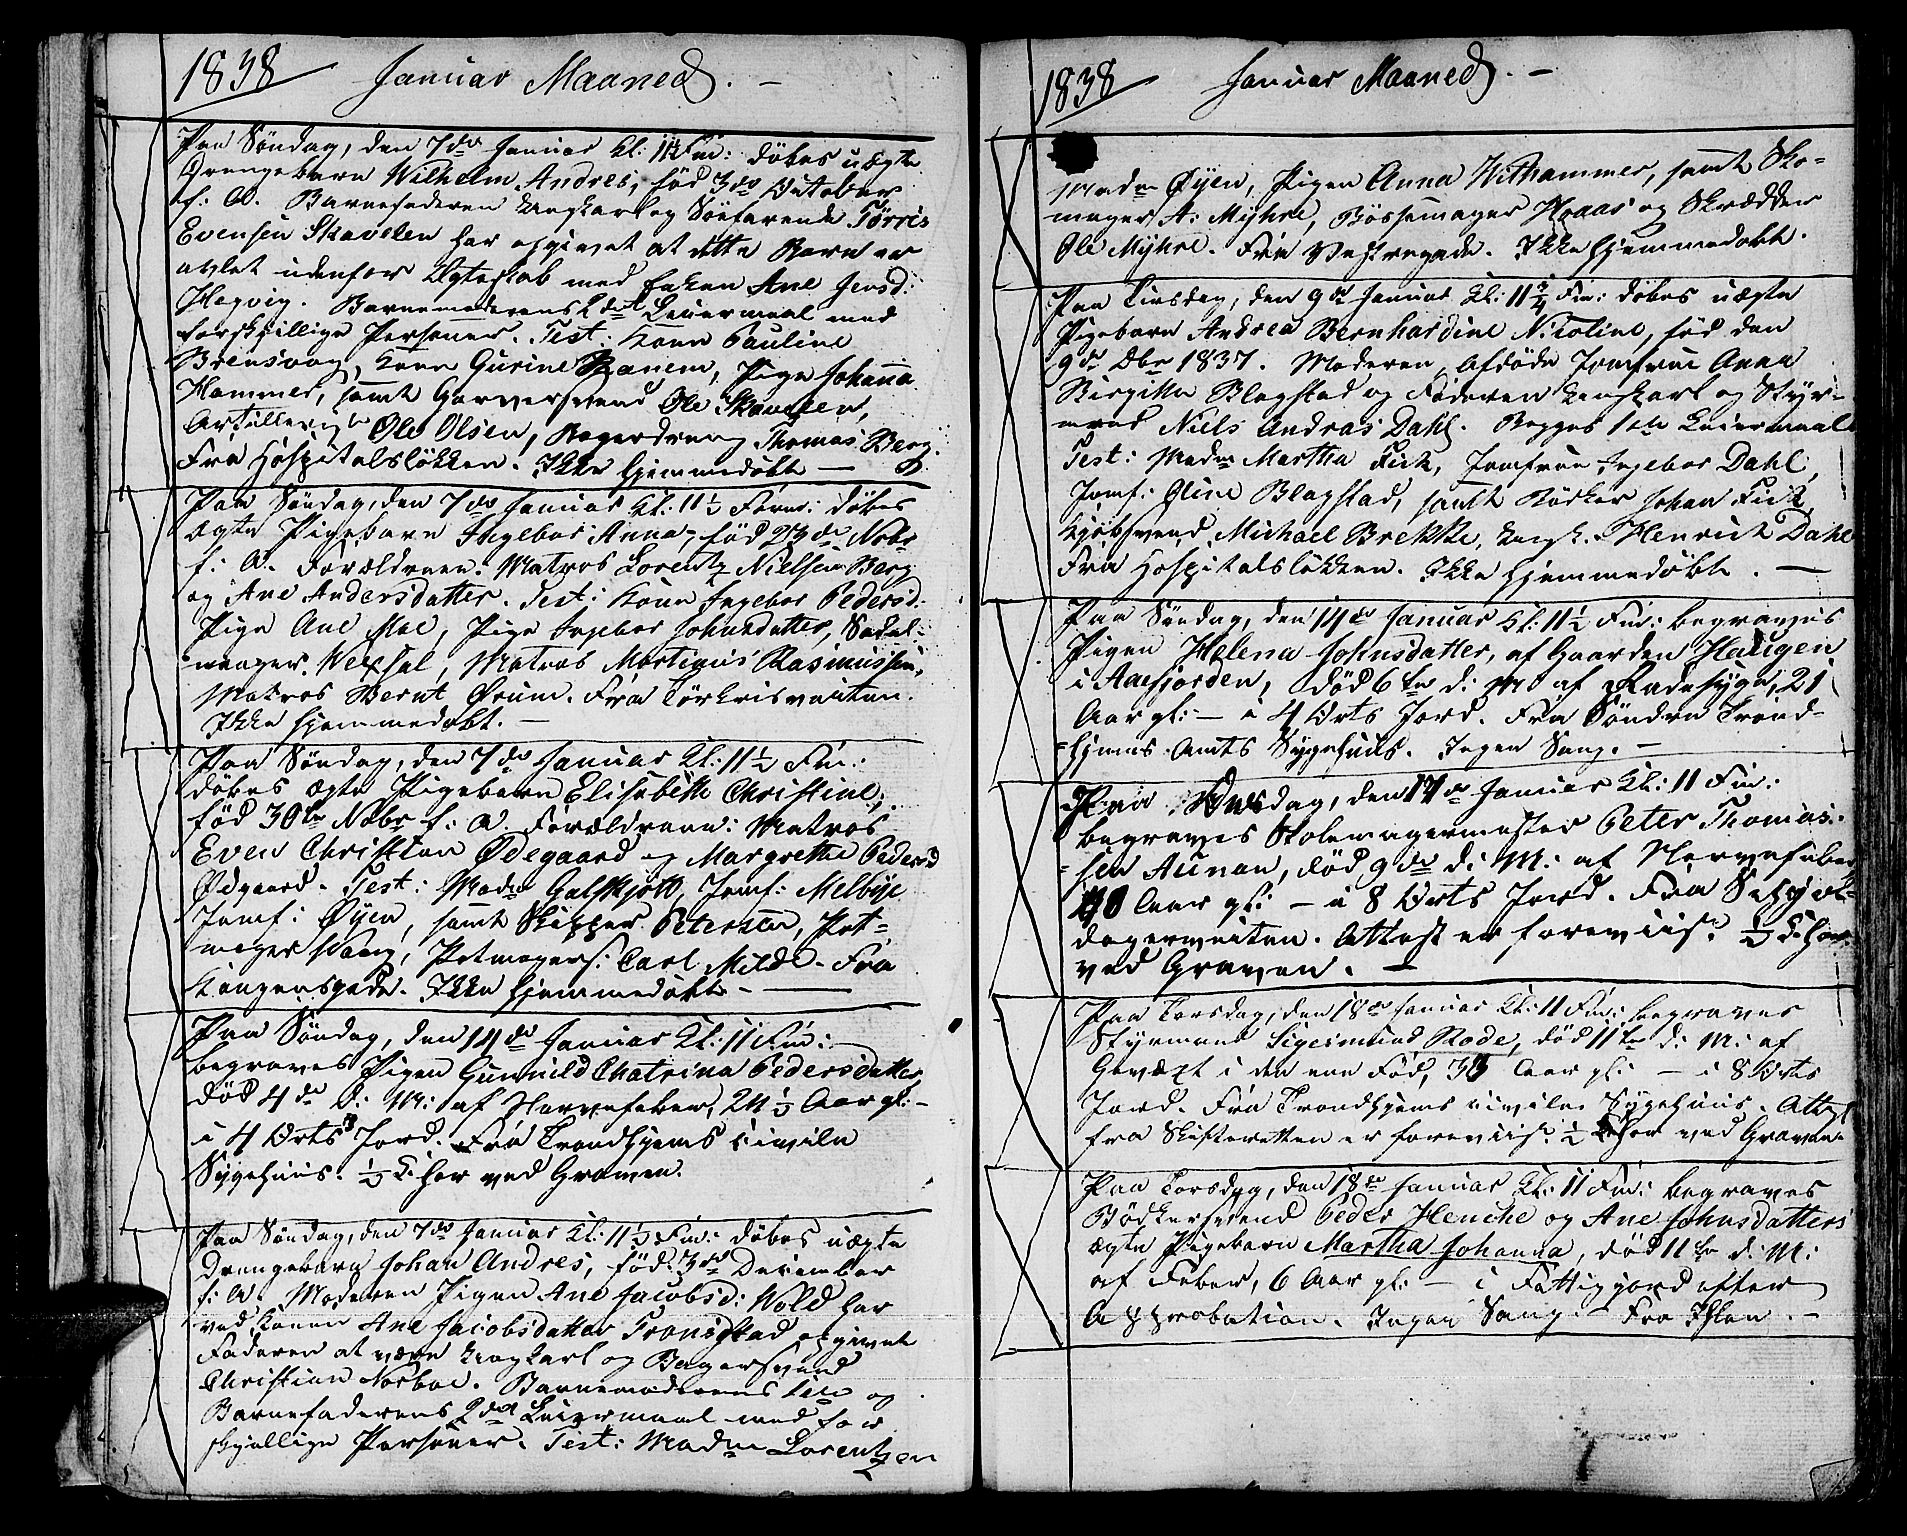 1838 Januar Maaned. –
Paa Søndag, den 7de Januar Kl: 11½ Fm: døbes uægte
Drengebarn Wilhelm Andres, fød 3de October
f: A. Barnefaderen Ungkarl og Søefarende Törris
Evensen Skavelen har opgivet at dette Barn er
avlet udenfor Ægteskab med Enken Ane Jensd:
Hegvig. Barnemoderens 2det Leiermaal med
forskjellige Personer. Test: Kone Pauline
Brensvog, Kone Gurine Ranem, Pige Johanna
Hammer, samt Garversvend Ole Skavelen,
Ole Olsen, Bagerdreng Thomas Berg.
Fra Hospitalsløkken. Ikke hjemmedøbt –
Paa Søndag, den 7de Januar Kl: 11½ Form: døbes
ægte Pigebarn Ingebor Anna, fød 23de Nobr
f: A. Forældrene: Matros Lorentz Nielsen Berg
og Ane Andersdatter. Test: Kone Ingebor Pedersd:
Pige Ane Moe, Pige Ingebor Johnsdatter, Sadel-
mager Wexsal, Matros Martinus Rasmussen,
Matros Bernt Ørum. Fra Törkrisveiten.
Ikke hjemmedøbt. –
Paa Søndag, den 7de Januar Kl: 11½ Fm:
døbes ægte Pigebarn Elisebeth Christine,
fød 30te Nobr f: A. Forældrene: Matros
Even Christian Ødegaard og Margrethe Pedersd
Ødgaard. Test: Madm Galskjøtt, Jomf: Melbye
Jomf: Øyen, samt Skipper Petersen, Pot-
mager Wang, Potmagers: Carl Milde. Fra
Kongensgade. Ikke hjemmedøbt –
Paa Søndag, den 14de Januar Kl: 11 Fm:
begraves Pigen Gunnild Chatrina Pedersdatter
død 4de d: M: af Nervefeber, 24½ Aar gl: –
i 4 Orts Jord. Fra Trondhjems civile
Sygehuus. ½ Chor ved Graven.
Paa Søndag, den 7de Januar Kl: 11½ Fm: døbes uægte
Drengebarn Johan Andres, fød 3de December
f: A. Moderen Pigen Ane Jacobsd: Wold har
ved Konen Ane Jacobsdatter Tronsstad opgivet
Faderen at være Ungkarl og Bagersvend
Christian Norboe. Barnemoderens 1ste og
Barnefaderens 2det Leiermaal med for
skjellige Personer. Test: Madm Lorentzen
1838 Januar Maaned. –
Madm Øyen, Pigen Anna Withammer, samt Sko-
mager A: Myhre, Bøssemager Haas og Skrædder
Ole Myhre. Fra Vestregade. Ikke hjemmedøbt.
Paa Tirsdag, den 9de Januar Kl: 11½ Fm: døbes uægte
Pigebarn Andrea Bernhardine Nicoline, fød den
9de Dbr 1837. Moderen afdøde Jomfrue Anna
Birgitte Blagstad og Faderen Ungkarl og Styr-
mand Niels Andras Dahl. Begges 1ste Leiermaal
Test: Madm Martha Fick, Jomfrue Ingebor Dahl,
Jomf: Oline Blagstad, samt Bødker Johan Fick,
Kjøbsvend Michael Brekke, Ungk. Henrich Dahl
Fra Hospitalsløkken. Ikke hjemmedøbt. –
Paa Søndag, den 14de Januar Kl: 11½ Fm: begraves
Pigen Helena Johnsdatter, af Gaarden Haugen
i Aaefjorden, død 6te d: M: af Radesyge, 21
Aar gl: – i 4 Orts Jord. Fra Søndre Trond-
hjems Amts Sygehuus. Ingen Sang. –
Paa Onsdag, den 17de Januar Kl: 11 Fm:
begraves Stolemagermester Peter Thomas-
sen Aunan, død 9de d: M: af Nervefeber
Aar gl: – i 8 Orts Jord. Fra
Attest er foreviist. ½ Chor
ved Graven. –
Paa Torsdag, den 18de Januar Kl: 11 Fm: begraves
Styrmand Sigeimund Rode, død 11te d: M: af
Gevæxt i den ene Fod, Aar gl: – i 8 Orts
Jord. Fra Trondhjems civile Sygehuus. Attest
fra Skifteretten er foreviist. ½ Chor ved Graven
Paa Torsdag, den 18de Januar Kl: 11 Fm: begraves
Bødkersvend Peder Henche og Ane Johnsdatters
ægte Pigebarn Martha Johanna, død 11te d: M:
af Feber, 6 Aar gl: – i Fattigjord efter
Approbation. Ingen Sang. – Fra Ihlen. –